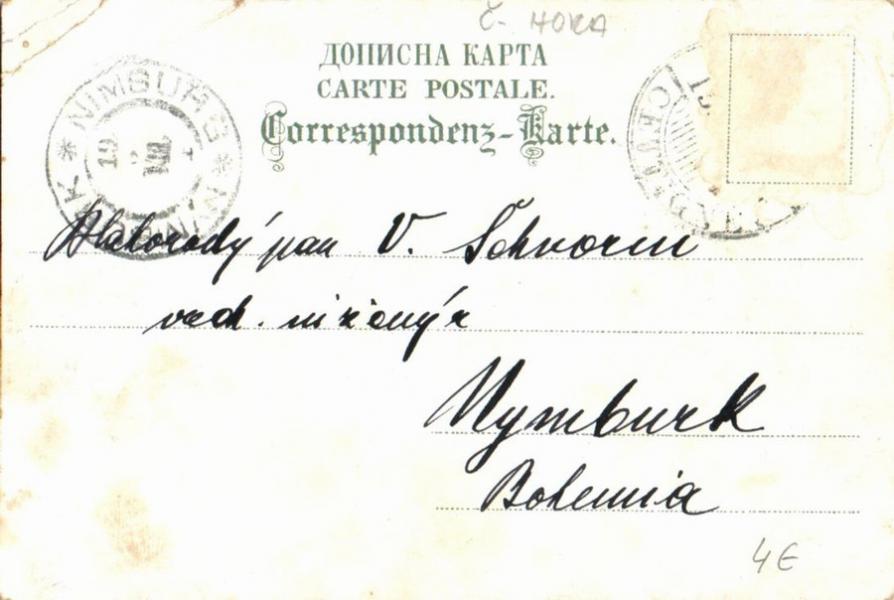 Č. HORA
ДОПИСНА КАРТА
CARTE POSTALE.
Correspondenz-Karte.
NIMBURG * NYMBURK *
19 VII
Blahorodý pan V. Schvorm
vrch.
Nymburk
Bohemia
4€